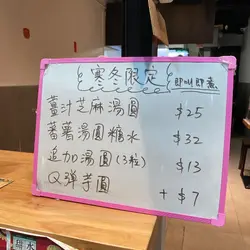 寒冬限定 即叫即煮
薑汁芝麻湯圓 $25
蕃薯湯圓糖水 $32
追加湯圓(3粒) $13
Q彈芋圓 +$7